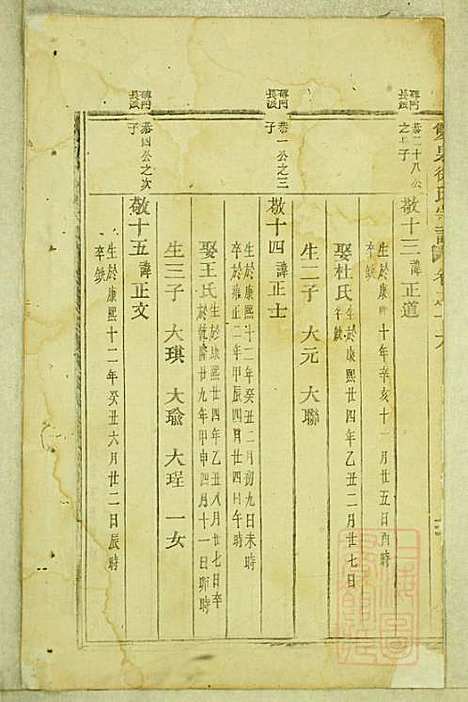 恭二十八公
之子
敬十三諱正道
生於康熙十年辛亥十一月廿五日酉時
卒缺
娶杜氏生於康熙廿四年乙丑二月廿七日
卒缺
生二子 大元 大聯
碑門
長派
恭一公之三
子
敬十四諱正士
生於康熙十二年癸丑二月初九日未時
卒於雍正二年甲辰四月廿四日午時
娶王氏生於康熙廿四年乙丑八月廿七日卒
於乾隆廿九年甲申四月十一日卯時
生三子 大琪 大瑜 大珵 一女
碑門
長派
恭四公之次
子
敬十五諱正文
生於康熙十二年癸丑六月廿二日辰時
卒缺